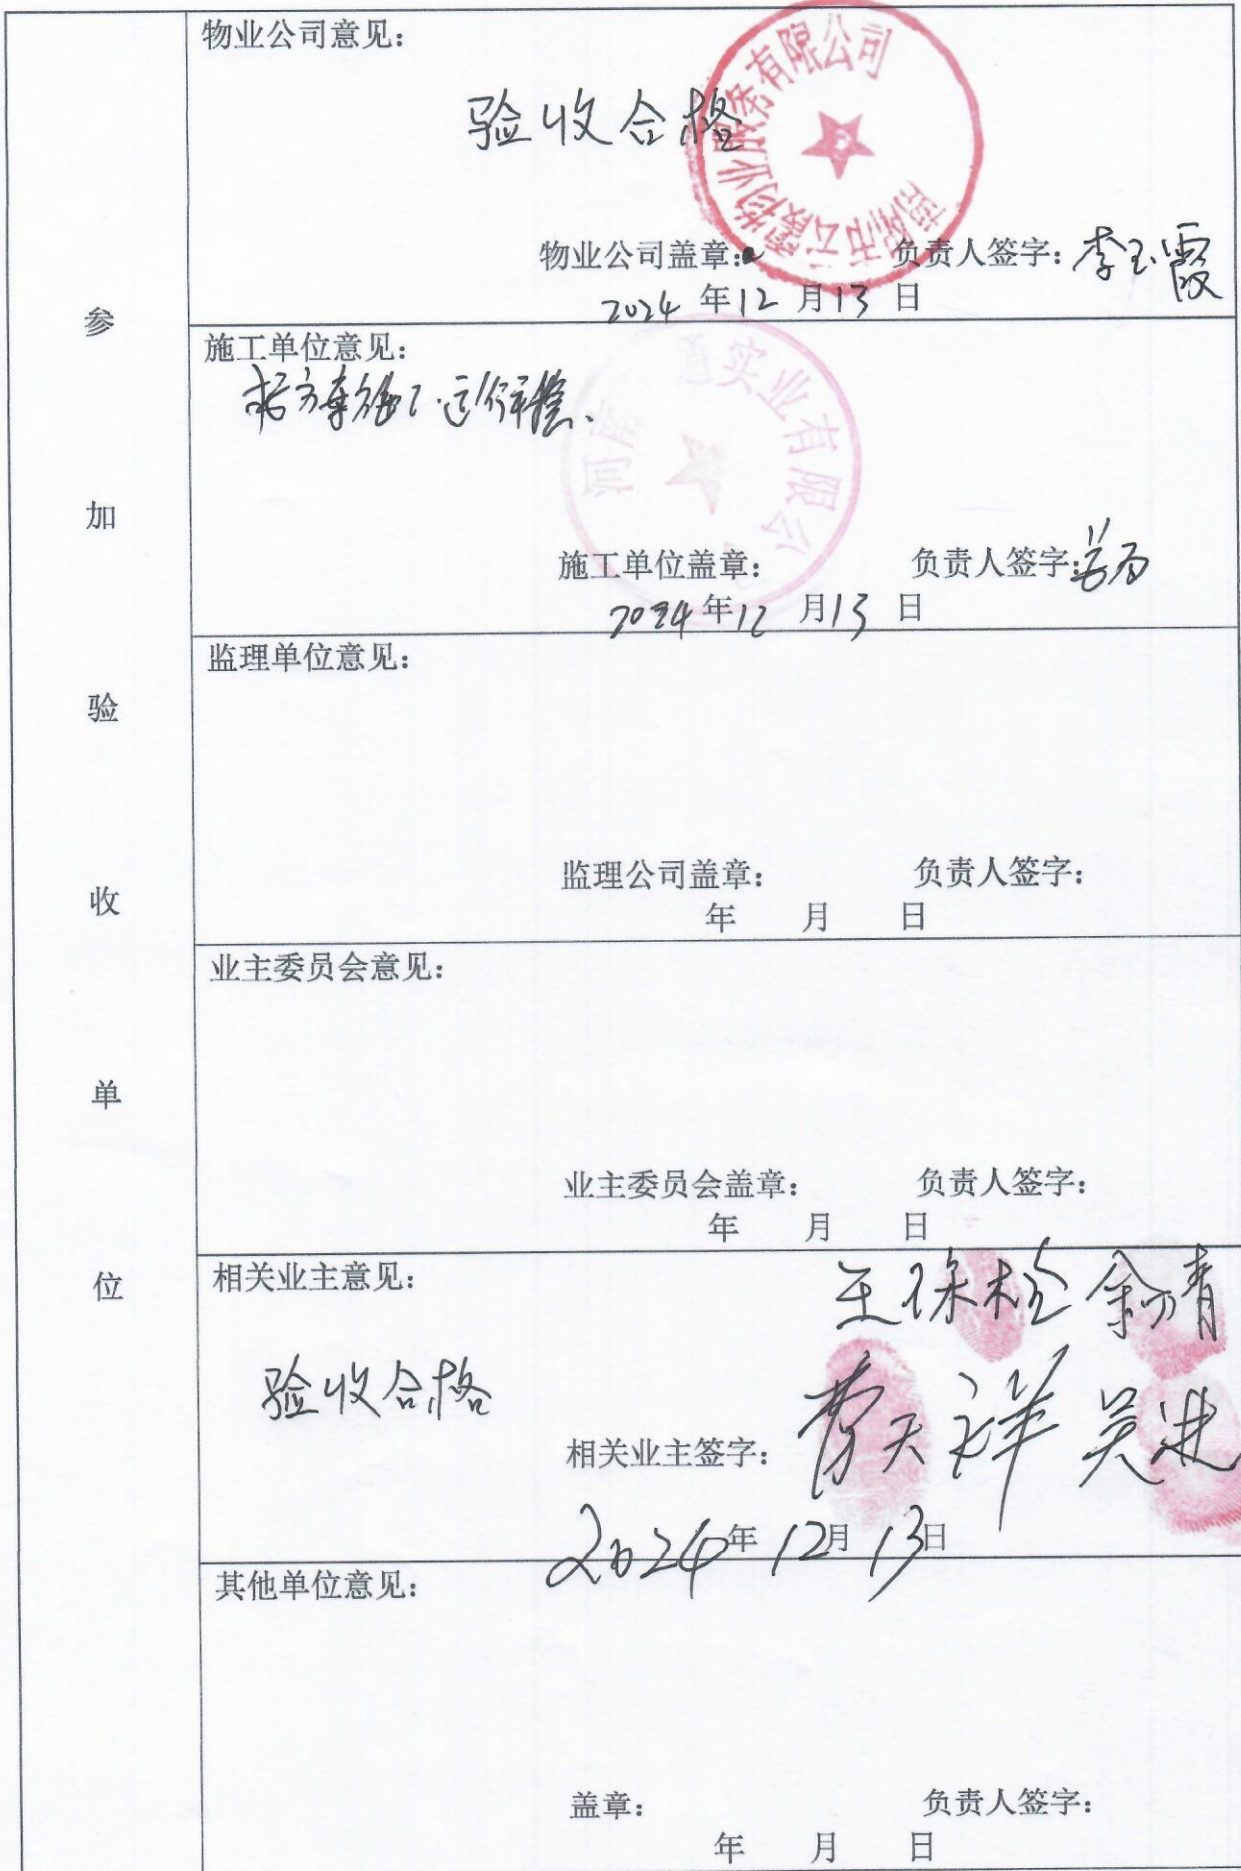 物业公司意见：
验收合格
南阳市云霞物业服务有限公司
物业公司盖章： 负责人签字：李玉霞
2024 年 12 月 13 日
参加验收单位
施工单位意见：
按方案施工.运行平稳.
河南 实业有限公
施工单位盖章： 负责人签字：
2024 年 12 月 13 日
监理单位意见：
监理公司盖章： 负责人签字：
年 月 日
业主委员会意见：
业主委员会盖章： 负责人签字：
年 月 日
相关业主意见：
王保栓
验收合格
相关业主签字： 天祥 吴进
2024 年 12 月 13 日
其他单位意见：
盖章： 负责人签字：
年 月 日